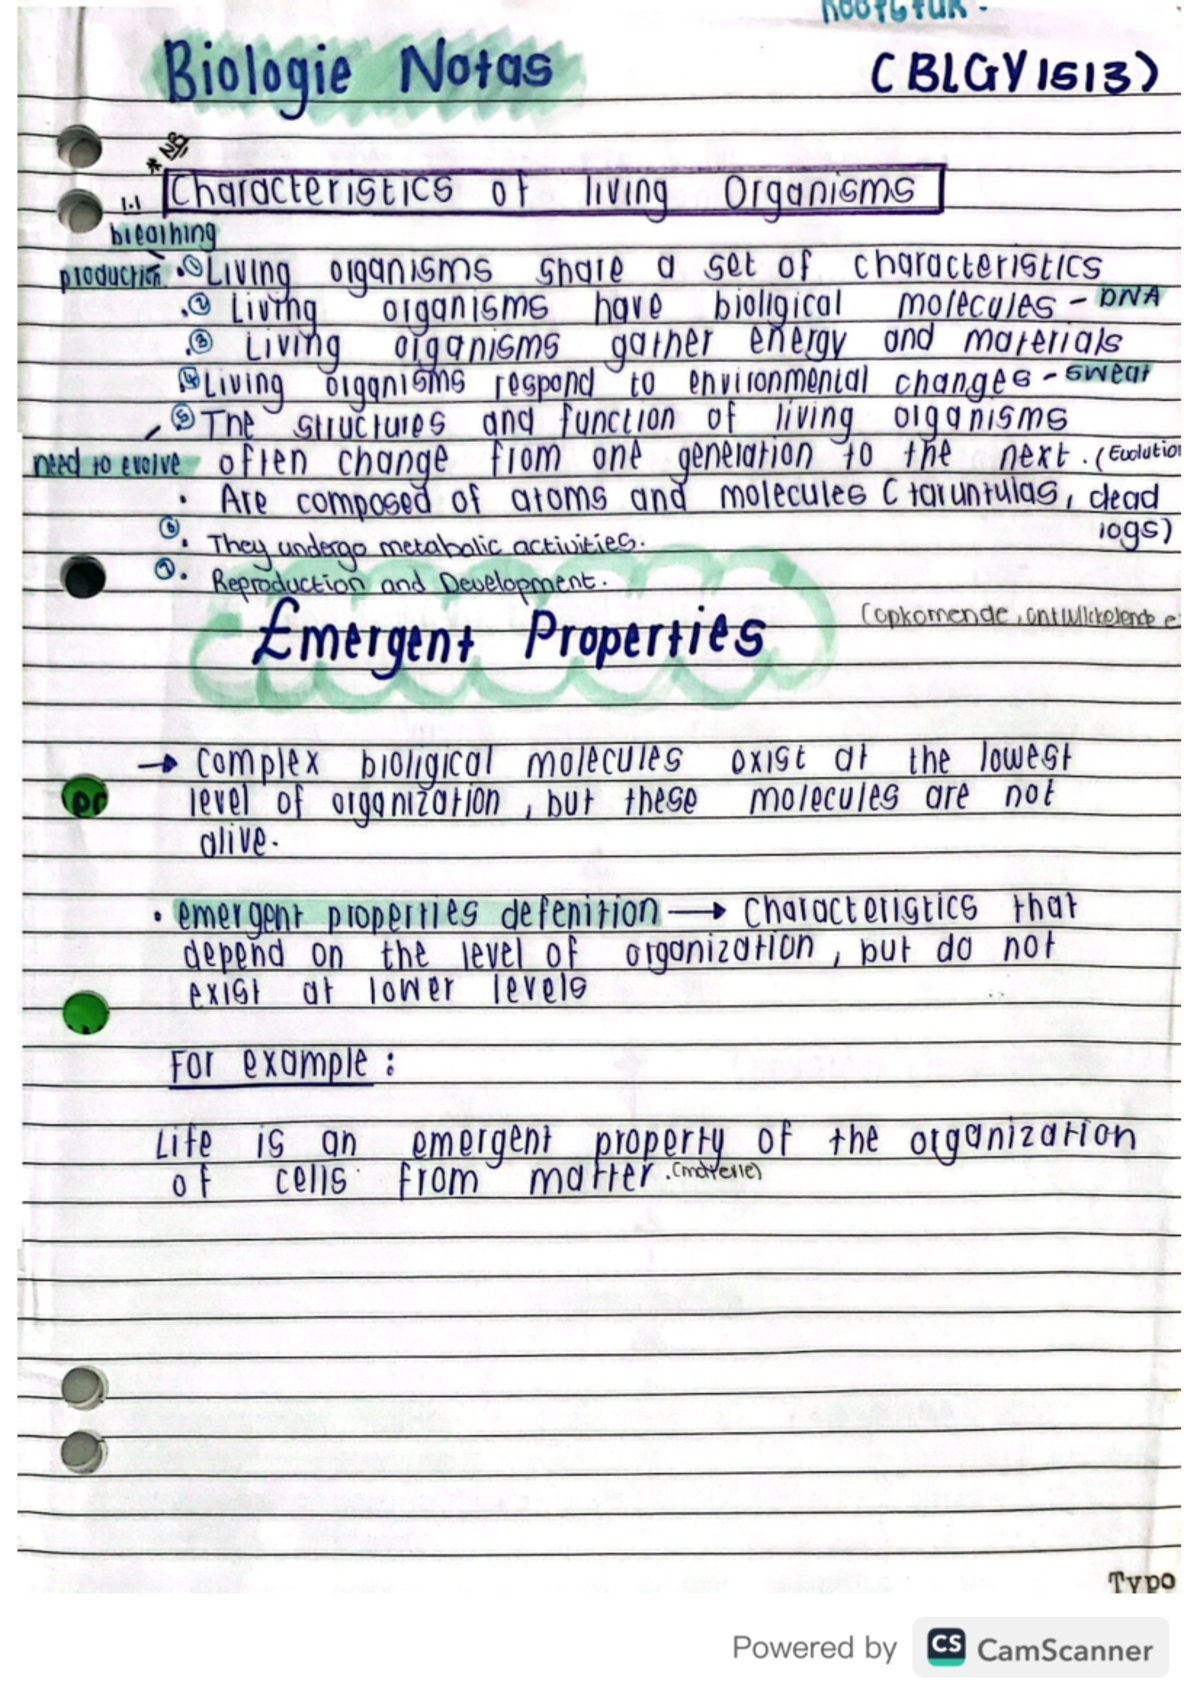 Biologie Notas (BLGY1513)
* NB
1.1 Characteristics of living Organisms
breathing
production • ① Living organisms share a set of characteristics
• ② Living organisms have bioligical molecules - DNA
• ③ Living organisms gather energy and materials
④ Living organisms respond to environmental changes - sweat
⑤ The structures and function of living organisms
need to evolve often change from one generation to the next. (Evolution
• Are composed of atoms and molecules (taruntulas, dead
logs)
⑥ • They undergo metabolic activities.
⑦ • Reproduction and Development.
Emergent Properties (opkomende, ontwikkelende e
→ Complex bioligical molecules exist at the lowest
level of organization, but these molecules are not
alive.
• emergent properties defenition → Characteristics that
depend on the level of organization, but do not
exist at lower levels
For example:
Life is an emergent property of the organization
of cells from matter. (materie)
Typo
Powered by CS CamScanner